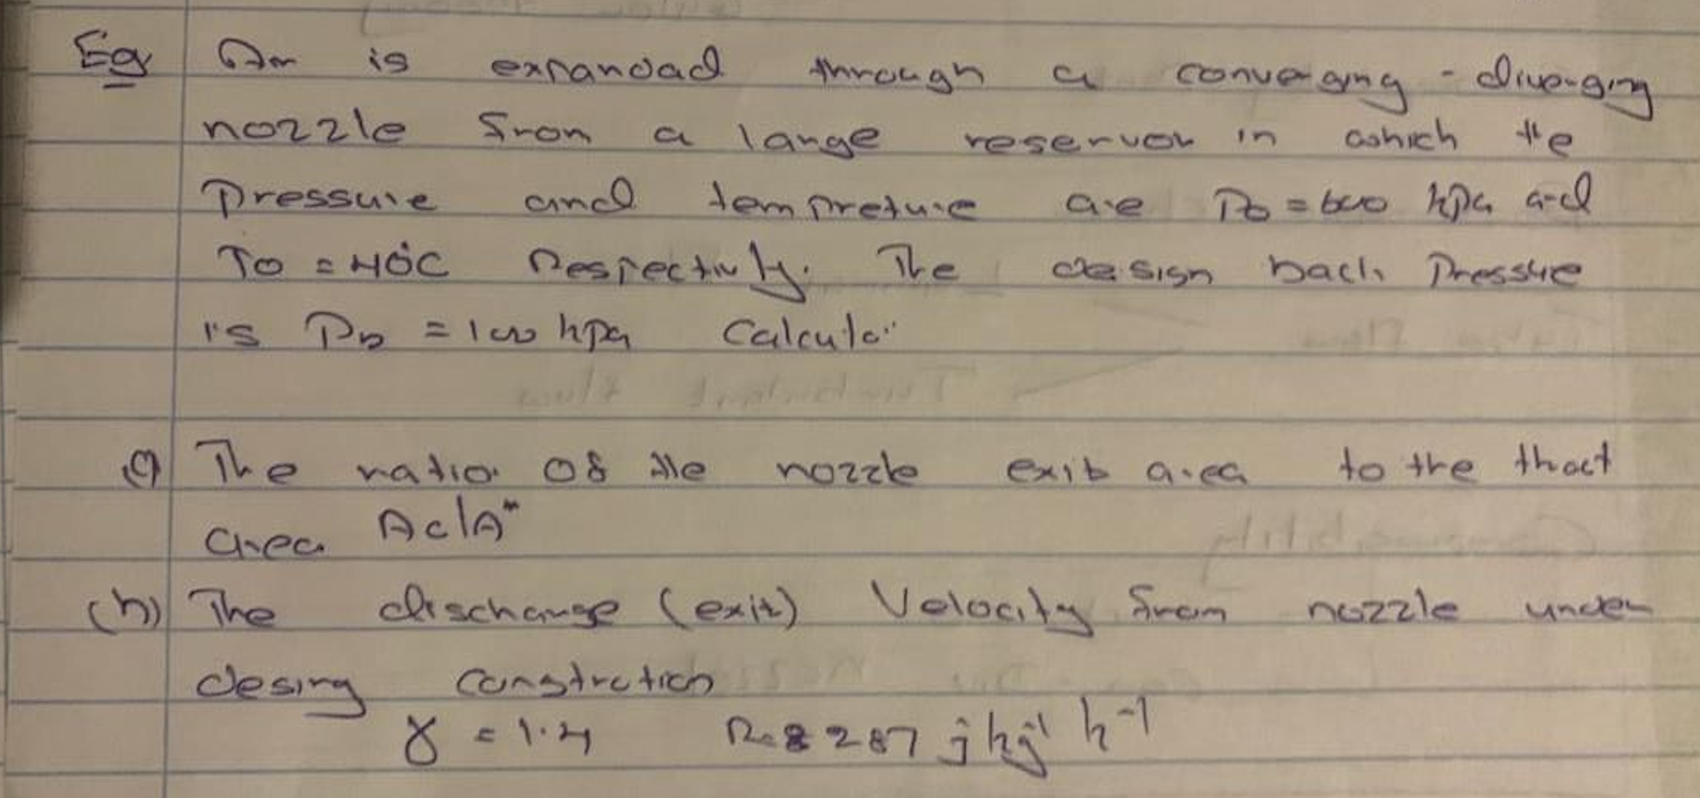 Eg Air is expandad through a converging - diverging
nozzle from a large reservor in which the
Pressure and tempreture are Po = 600 kpa and
To = 40°C Respectivly. The design back Pressure
is Pb = 100 kpa Calculate
(a) The ratio of the nozzle exit area to the thoat
area Ae/A*
(b) The discharge (exit) Velocity from nozzle under
desing constrction
γ = 1.4 R = 287 j kg-1 k-1